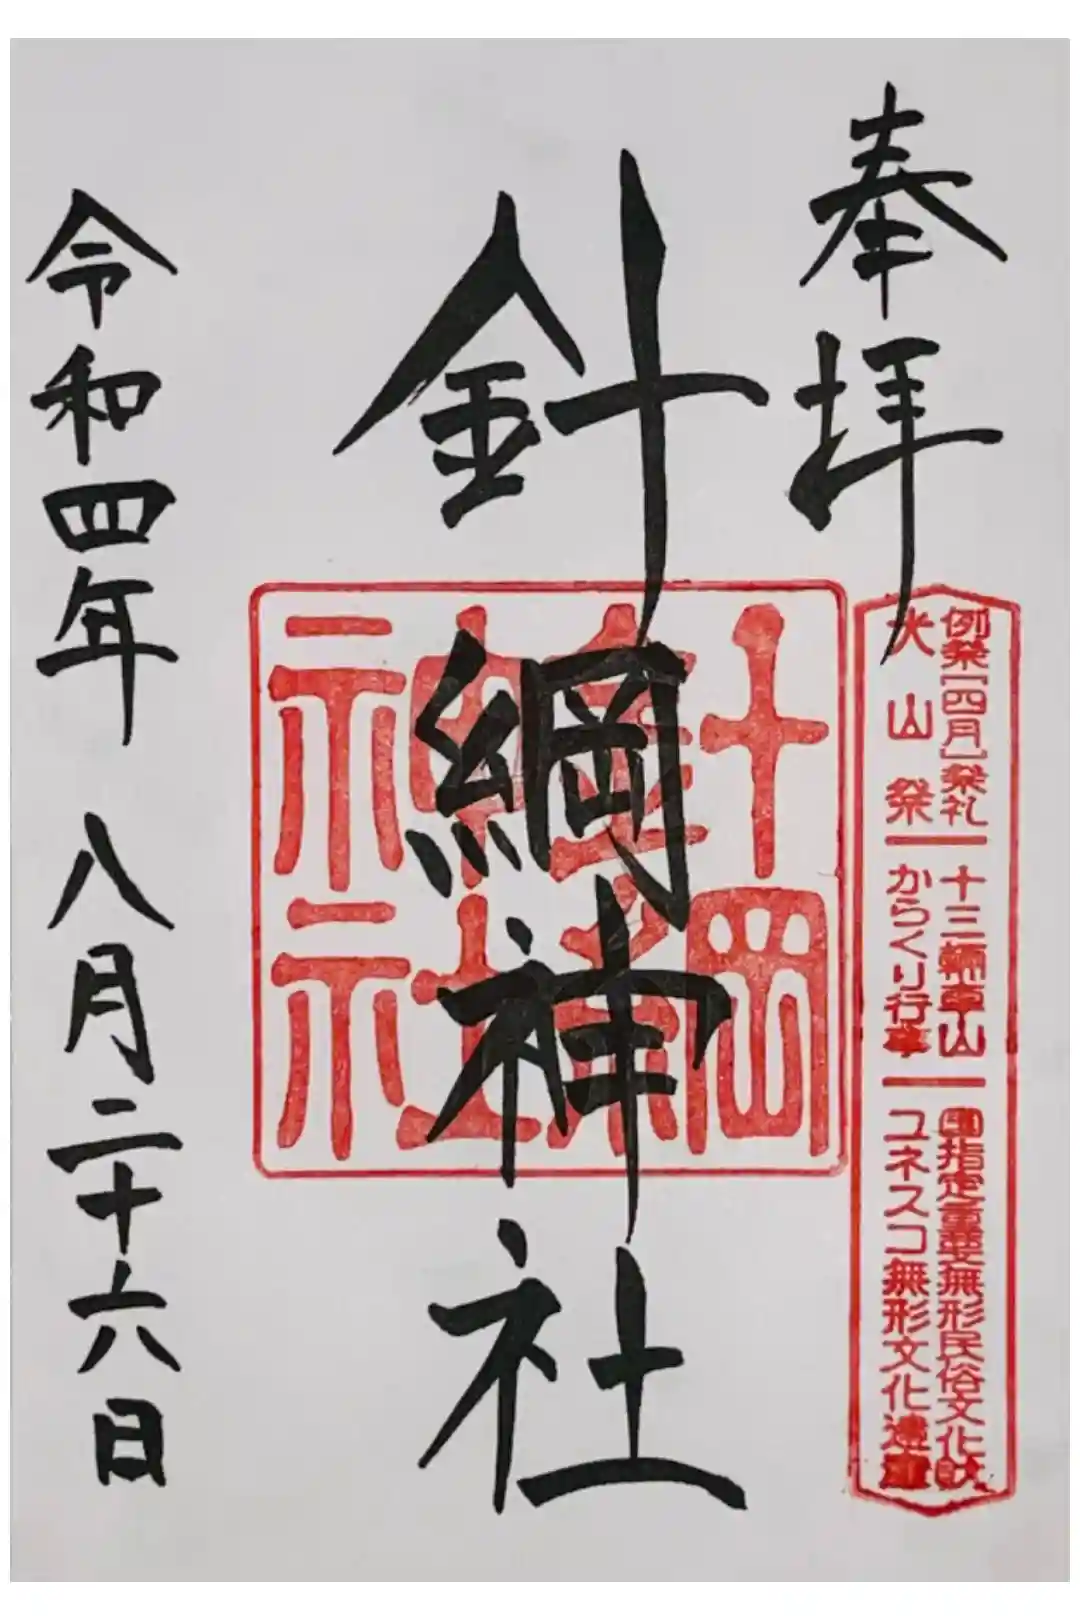 奉拝
例祭[四月]祭礼
犬山祭
十三輛車山
からくり行事
国指定重要無形民俗文化財
ユネスコ無形文化遺産
針綱神社
針綱神社
令和四年 八月二十六日